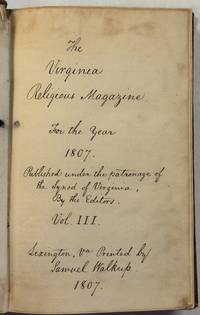 The
Virginia
Religious Magazine
For the Year
1807.
Published under the patronage of
the Synod of Virginia,
By the Editors.
Vol. III.
Lexington, Va Printed by
Samuel Walkup.
1807.